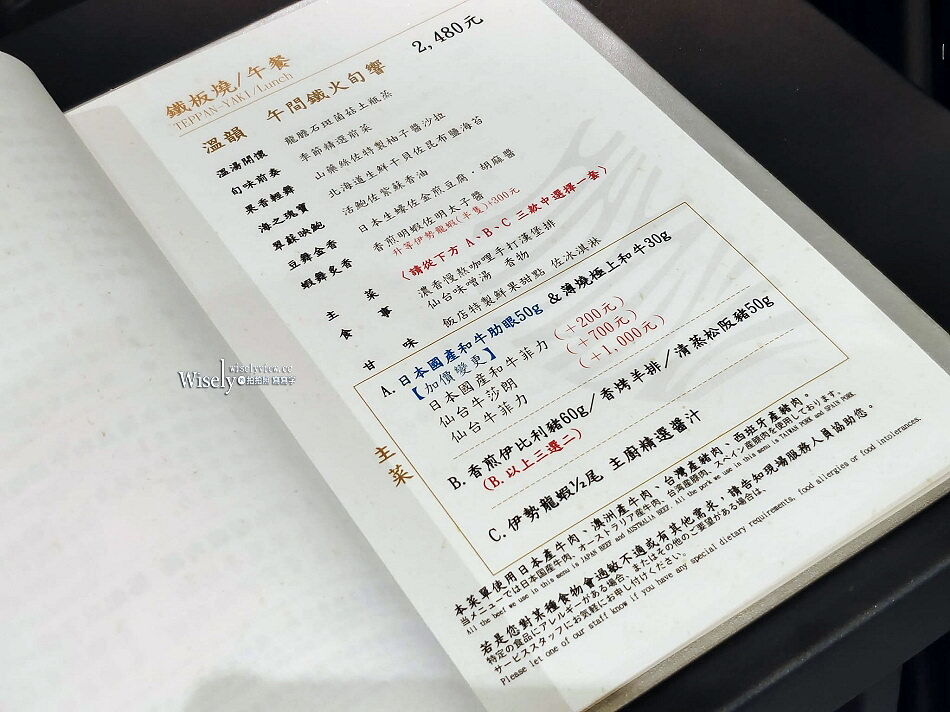 鐵板燒/午餐
TEPPAN-YAKI/Lunch
2,480元
溫韻 午間鐵火旬饗
溫湯開懷 龍膽石斑菌菇土瓶蒸
旬味前奏 季節精選前菜
果香輕舞 山藥絲佐特製柚子醬沙拉
海之瑰寶 北海道生鮮干貝佐昆布鹽海苔
翠蘇映鮑 活鮑佐紫蘇香油
豆舞金香 日本生蠔佐金煎豆腐·胡麻醬
蝦舞炙香 香煎明蝦佐明太子醬
升等伊勢龍蝦(半隻)+300元
主菜 (請從下方A、B、C三款中選擇一套)
食事 濃香慢熬咖哩手打漢堡排
仙台味噌湯 香物
甘味 飯店特製鮮果甜點 佐冰淇淋
主菜
A. 日本國產和牛肋眼50g & 薄燒極上和牛30g
【加價變更】
日本國產和牛菲力 (+200元)
仙台牛莎朗 (+700元)
仙台牛菲力 (+1,000元)
B. 香煎伊比利豬60g/香烤羊排/清蒸松阪豬50g
(B. 以上三選二)
C. 伊勢龍蝦½尾 主廚精選醬汁
本菜單使用日本產牛肉、澳洲產牛肉、台灣產豬肉、西班牙產豬肉。
当メニューでは日本国産牛肉、オーストラリア産牛肉、台湾産豚肉、スペイン産豚肉を使用しております。
All the beef we use in this menu is JAPAN BEEF and AUSTRALIA BEEF. All the pork we use in this menu is TAIWAN PORK and SPAIN PORK.
若是您對某種食物會過敏不適或有其他需求，請告知現場服務人員協助您。
特定の食品にアレルギーがある場合、またはその他のご要望がある場合は、
サービススタッフにお気軽にお申し付けください。
Please let one of our staff know if you have any special dietary requirements, food allergies or food intolerances.
wiselyview.cc
Wisely